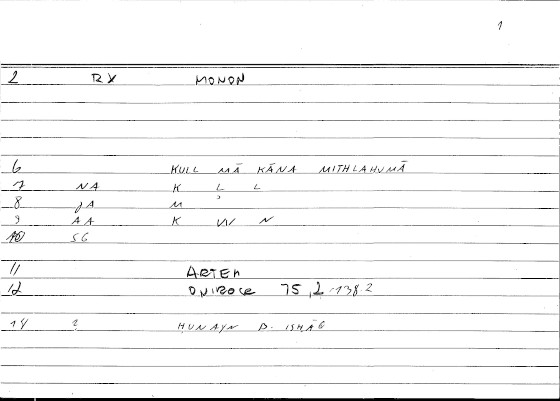 1
2 RX MONON
6 KULL MĀ KĀNA MITHLAHUMĀ
7 NA K L L
8 JA M ʾ
9 AA K W N
10 SG
11 ARTEM
12 ONIROCR 75,2-138 2
14 2 HUNAYN B. ISHĀQ